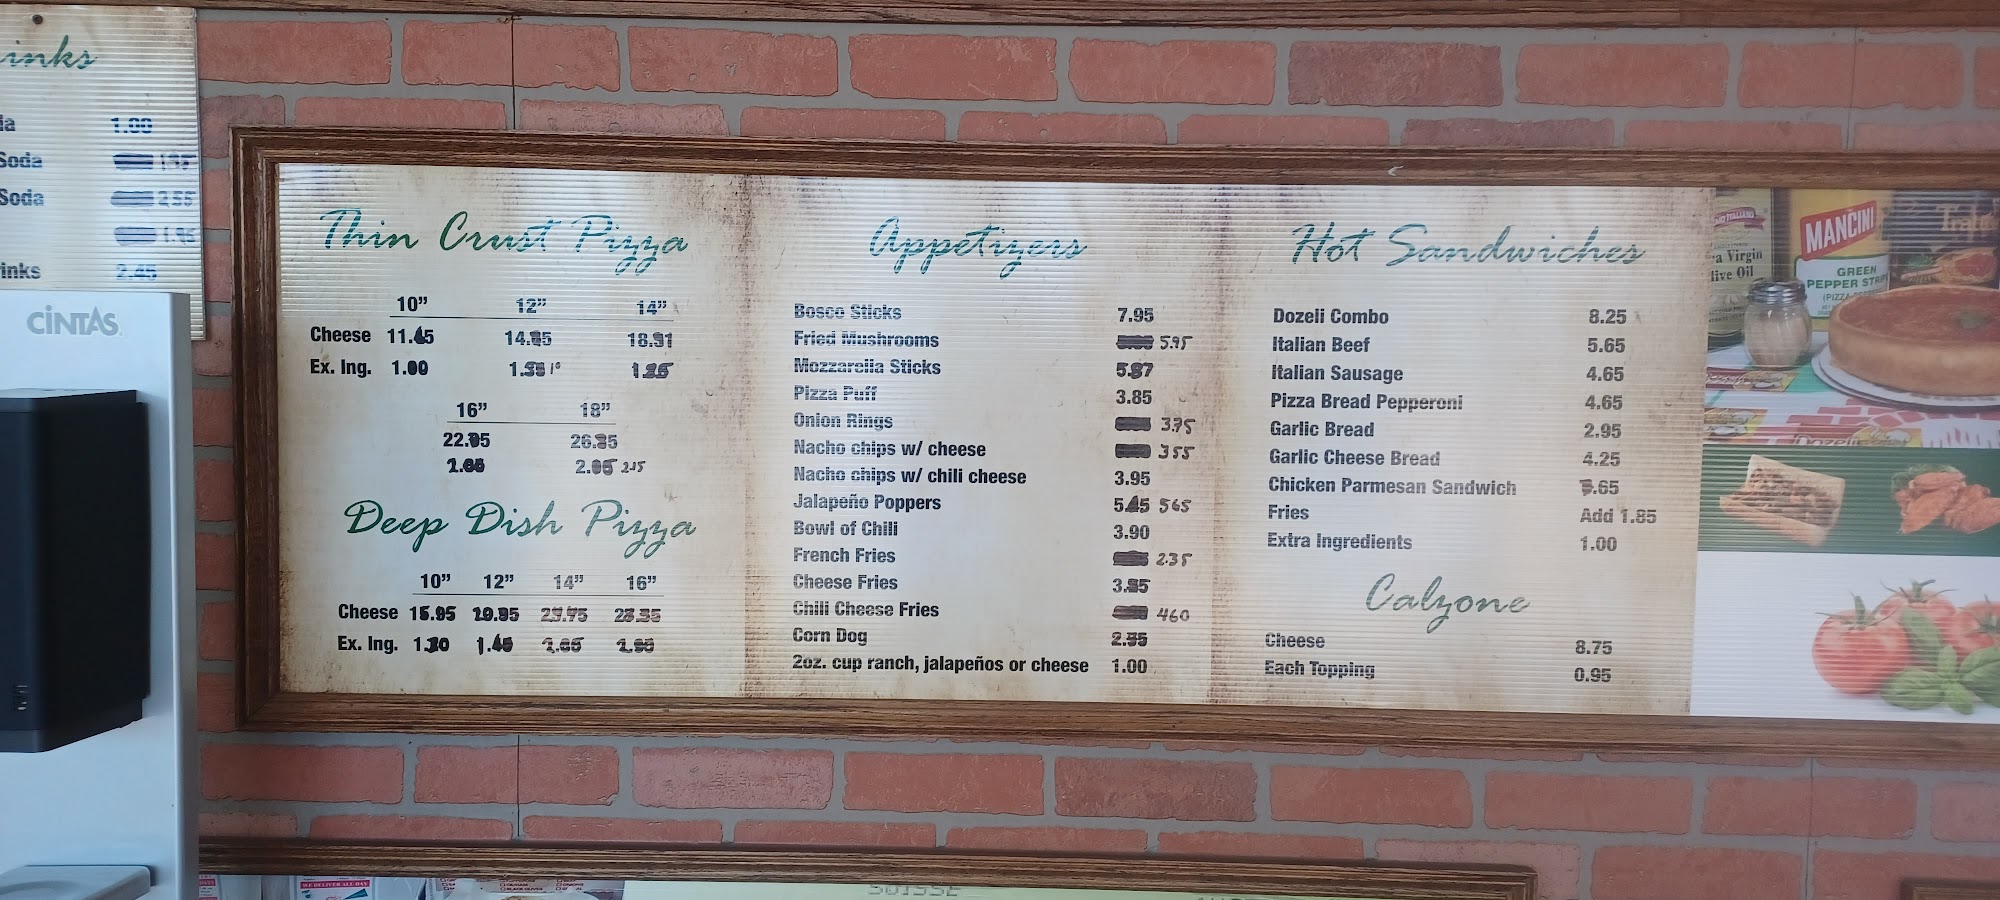 inks
1.00
Soda
Soda 2.55
1.95
inks 2.45
CINTAS
Thin Crust Pizza
10” 12” 14”
Cheese 11.45
Ex. Ing. 1.00
16” 18”
Deep Dish Pizza
10” 12” 14” 16”
Cheese 15.95
Ex. Ing.
Appetizers
Bosco Sticks 7.95
Fried Mushrooms 5.95
Mozzarella Sticks
Pizza Puff 3.85
Onion Rings 3.75
Nacho chips w/ cheese 355
Nacho chips w/ chili cheese 3.95
Jalapeño Poppers 565
Bowl of Chili 3.90
French Fries 2.35
Cheese Fries
Chili Cheese Fries 460
Corn Dog
2oz. cup ranch, jalapeños or cheese 1.00
Hot Sandwiches
Dozeli Combo 8.25
Italian Beef 5.65
Italian Sausage 4.65
Pizza Bread Pepperoni 4.65
Garlic Bread 2.95
Garlic Cheese Bread 4.25
Chicken Parmesan Sandwich
Fries Add 1.85
Extra Ingredients 1.00
Calzone
Cheese 8.75
Each Topping 0.95
Virgin
Olive Oil
MANCINI
GREEN
PEPPER
WE DELIVER ALL DAY